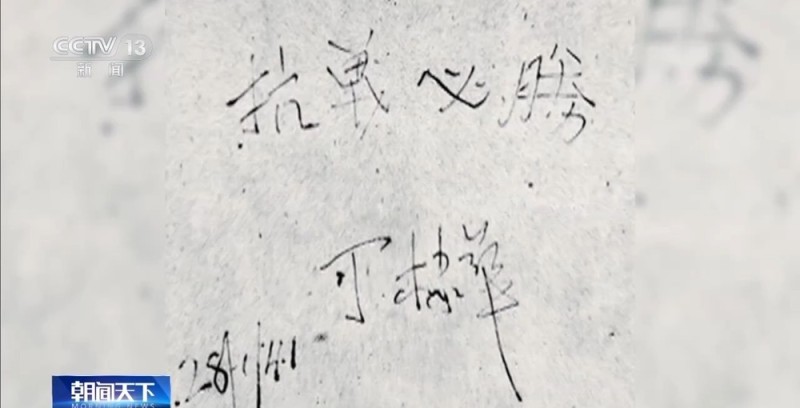 CCTV 13
新闻
抗戰必勝
華
28/1/41
朝闻天下
MORNING NEWS